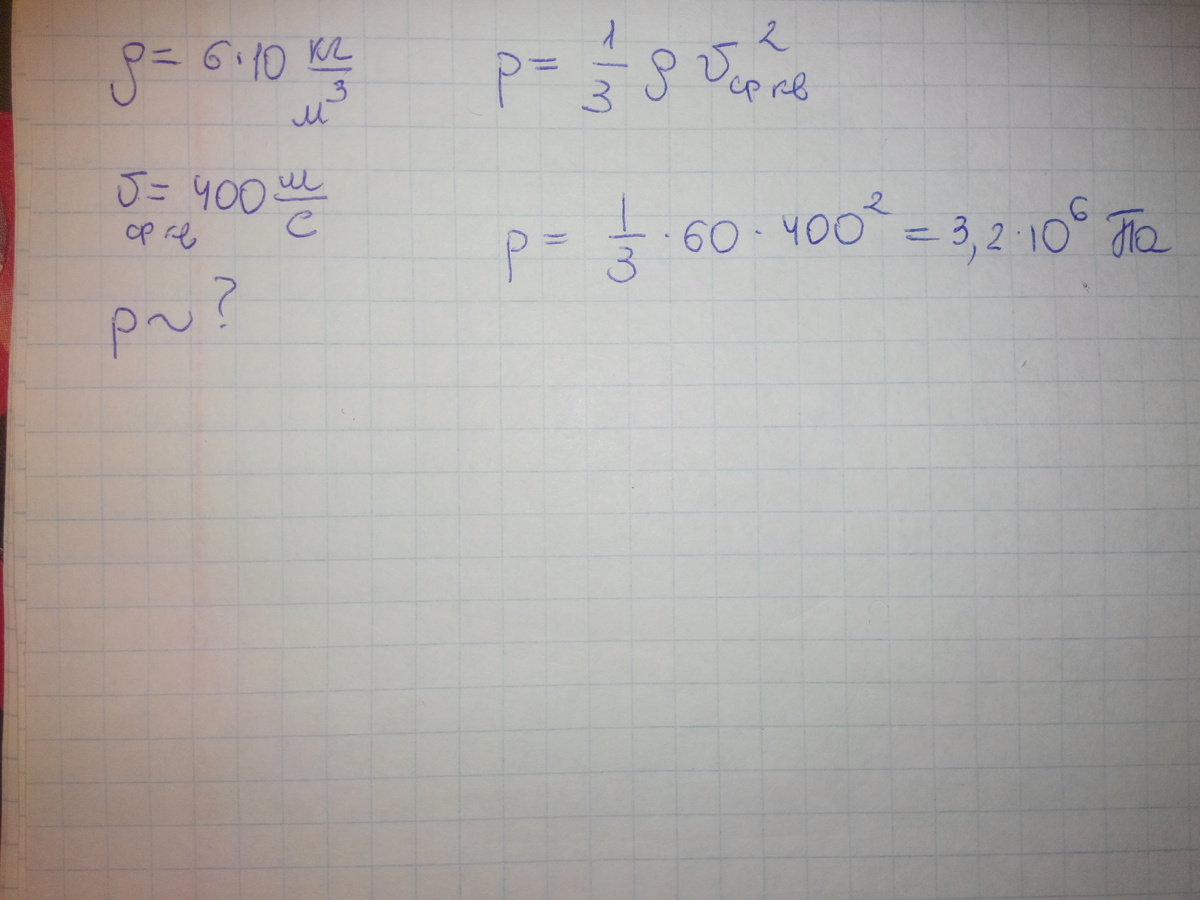 ρ = 6·10 кг/м³
v ср кв = 400 м/с
p ~ ?
p = 1/3 ρ v² ср кв
p = 1/3 · 60 · 400² = 3,2·10⁶ Па